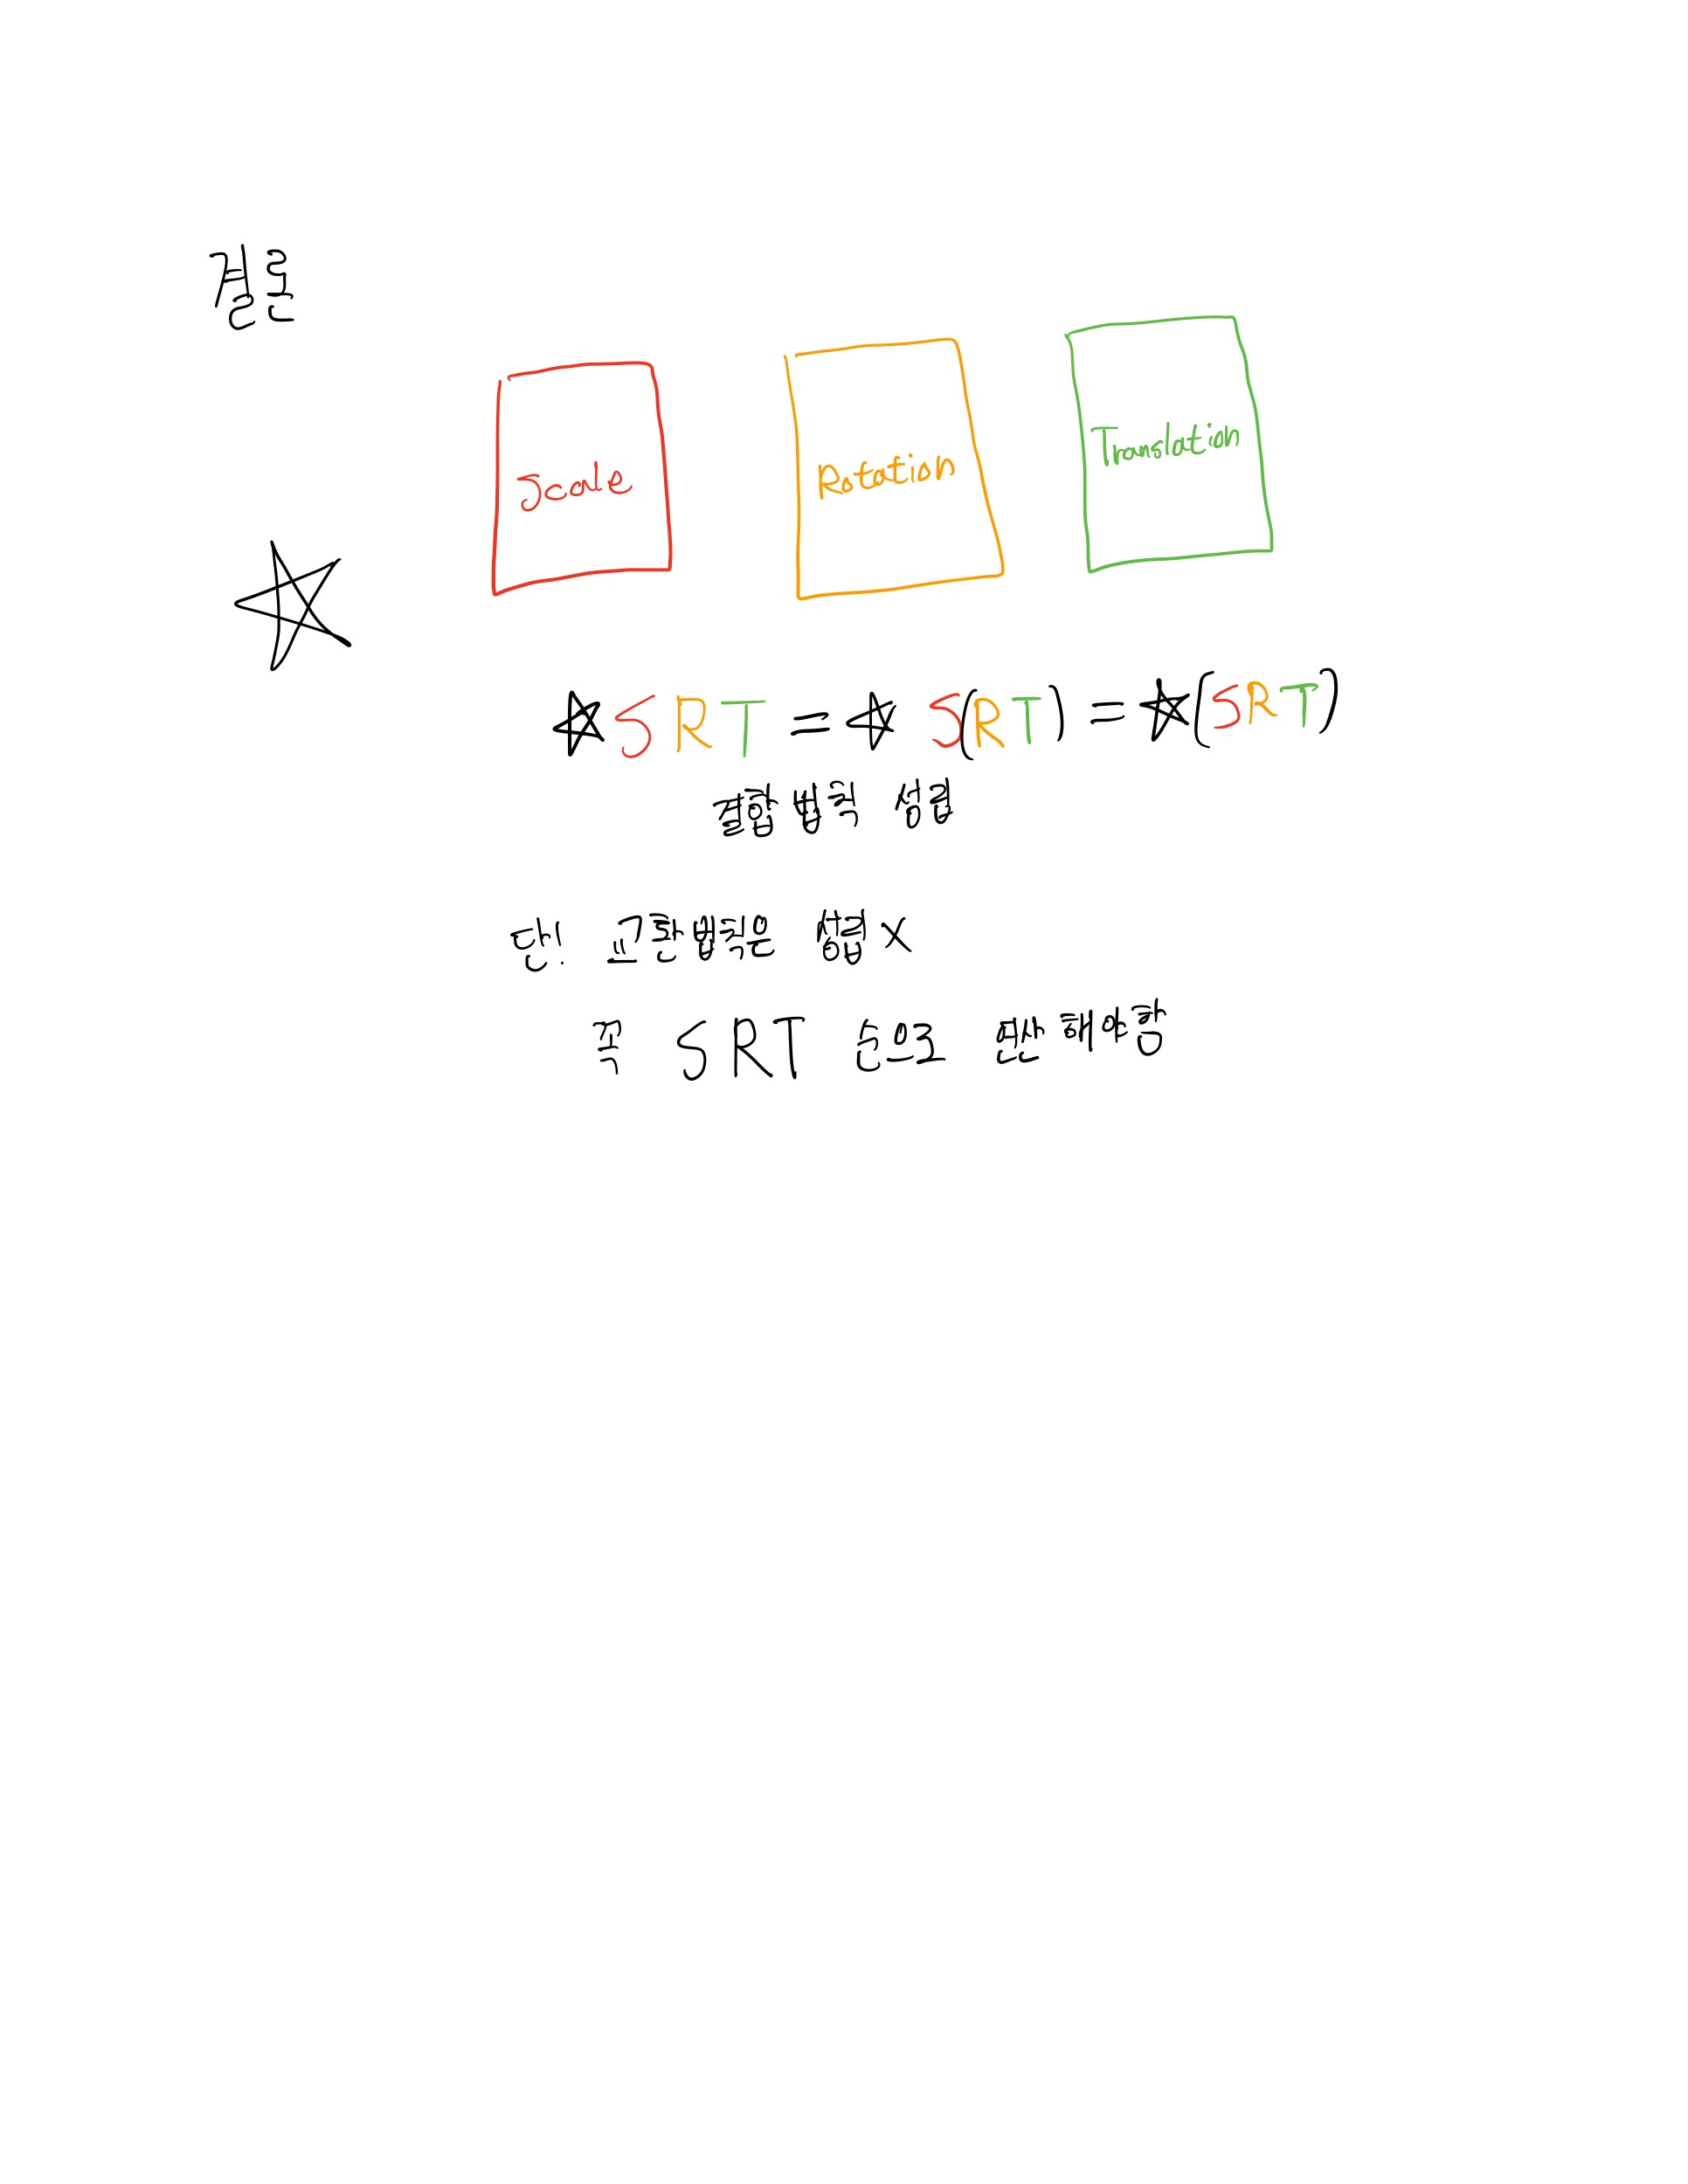 결론
Scale Rotation Translation
☆SRT = ☆S(RT) = ☆(SRT)
결합 법칙 성립
단! 교환법칙은 성립X
꼭 SRT 순으로 연산해야함